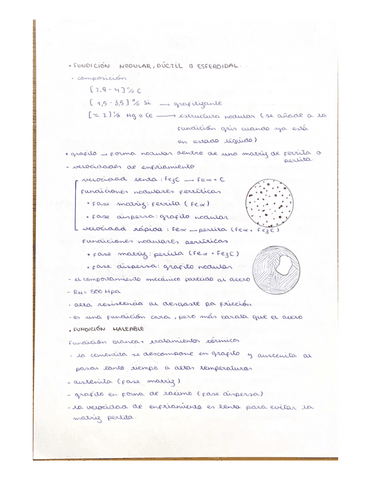 · FUNDICIÓN NODULAR, DÚCTIL O ESFEROIDAL
· composición
[2,9 - 4] % C
[1,5 - 3,5] % Si → grafitizante
% Mg o Ce → estructura nodular (se añade a la
fundición gris cuando ya está
en estado líquido)
· grafito → forma nodular dentro de una matriz de ferrita o
perlita
- velocidades de enfriamiento
velocidad lenta: Fe3C → Feα + C
fundiciones nodulares ferríticas
· Fase matriz: ferrita (Feα)
· Fase dispersa: grafito nodular
velocidad rápida: Feα → perlita (Feα + Fe3C)
fundiciones nodulares perlíticas
· Fase matriz: perlita (Feα + Fe3C)
· Fase dispersa: grafito nodular
- el comportamiento mecánico parecido al acero
500 Mpa
- alta resistencia al desgaste por fricción
- es una fundición cara, pero más barata que el acero
· FUNDICIÓN MALEABLE
Fundición blanca + tratamientos térmicos
- la cementita se descompone en grafito y austenita al
pasar tanto tiempo a altas temperaturas
- austenita (fase matriz)
- grafito en forma de racimo (fase dispersa)
- la velocidad de enfriamiento es lenta para evitar la
matriz perlita